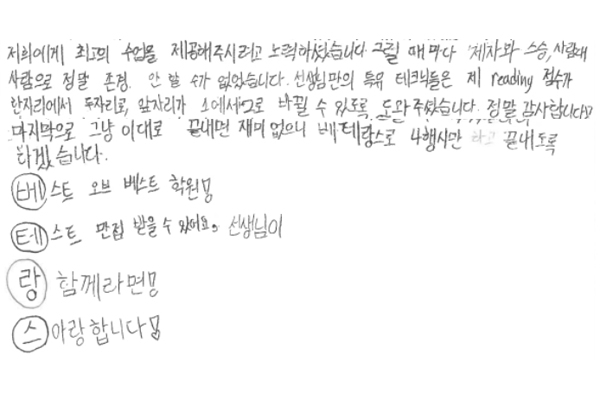 저희에게 최고의 수업을 제공해주시려고 노력하셨습니다. 그럴 때마다 제자와 스승, 사람대
사람으로 정말 존경 안 할 수가 없었습니다. 선생님만의 특유 테크닉들은 제 reading 점수가
한자리에서 두자리로, 앞자리가 1에서 2로 바뀔 수 있도록 도와주셨습니다. 정말 감사합니다!
마지막으로 그냥 이대로 끝내면 재미 없으니 베테랑스로 4행시만 하고 끝내도록
하겠습니다.
베스트 오브 베스트 학원!
테스트 만점 받을 수 있어요. 선생님이
랑 함께라면!
스아랑합니다!